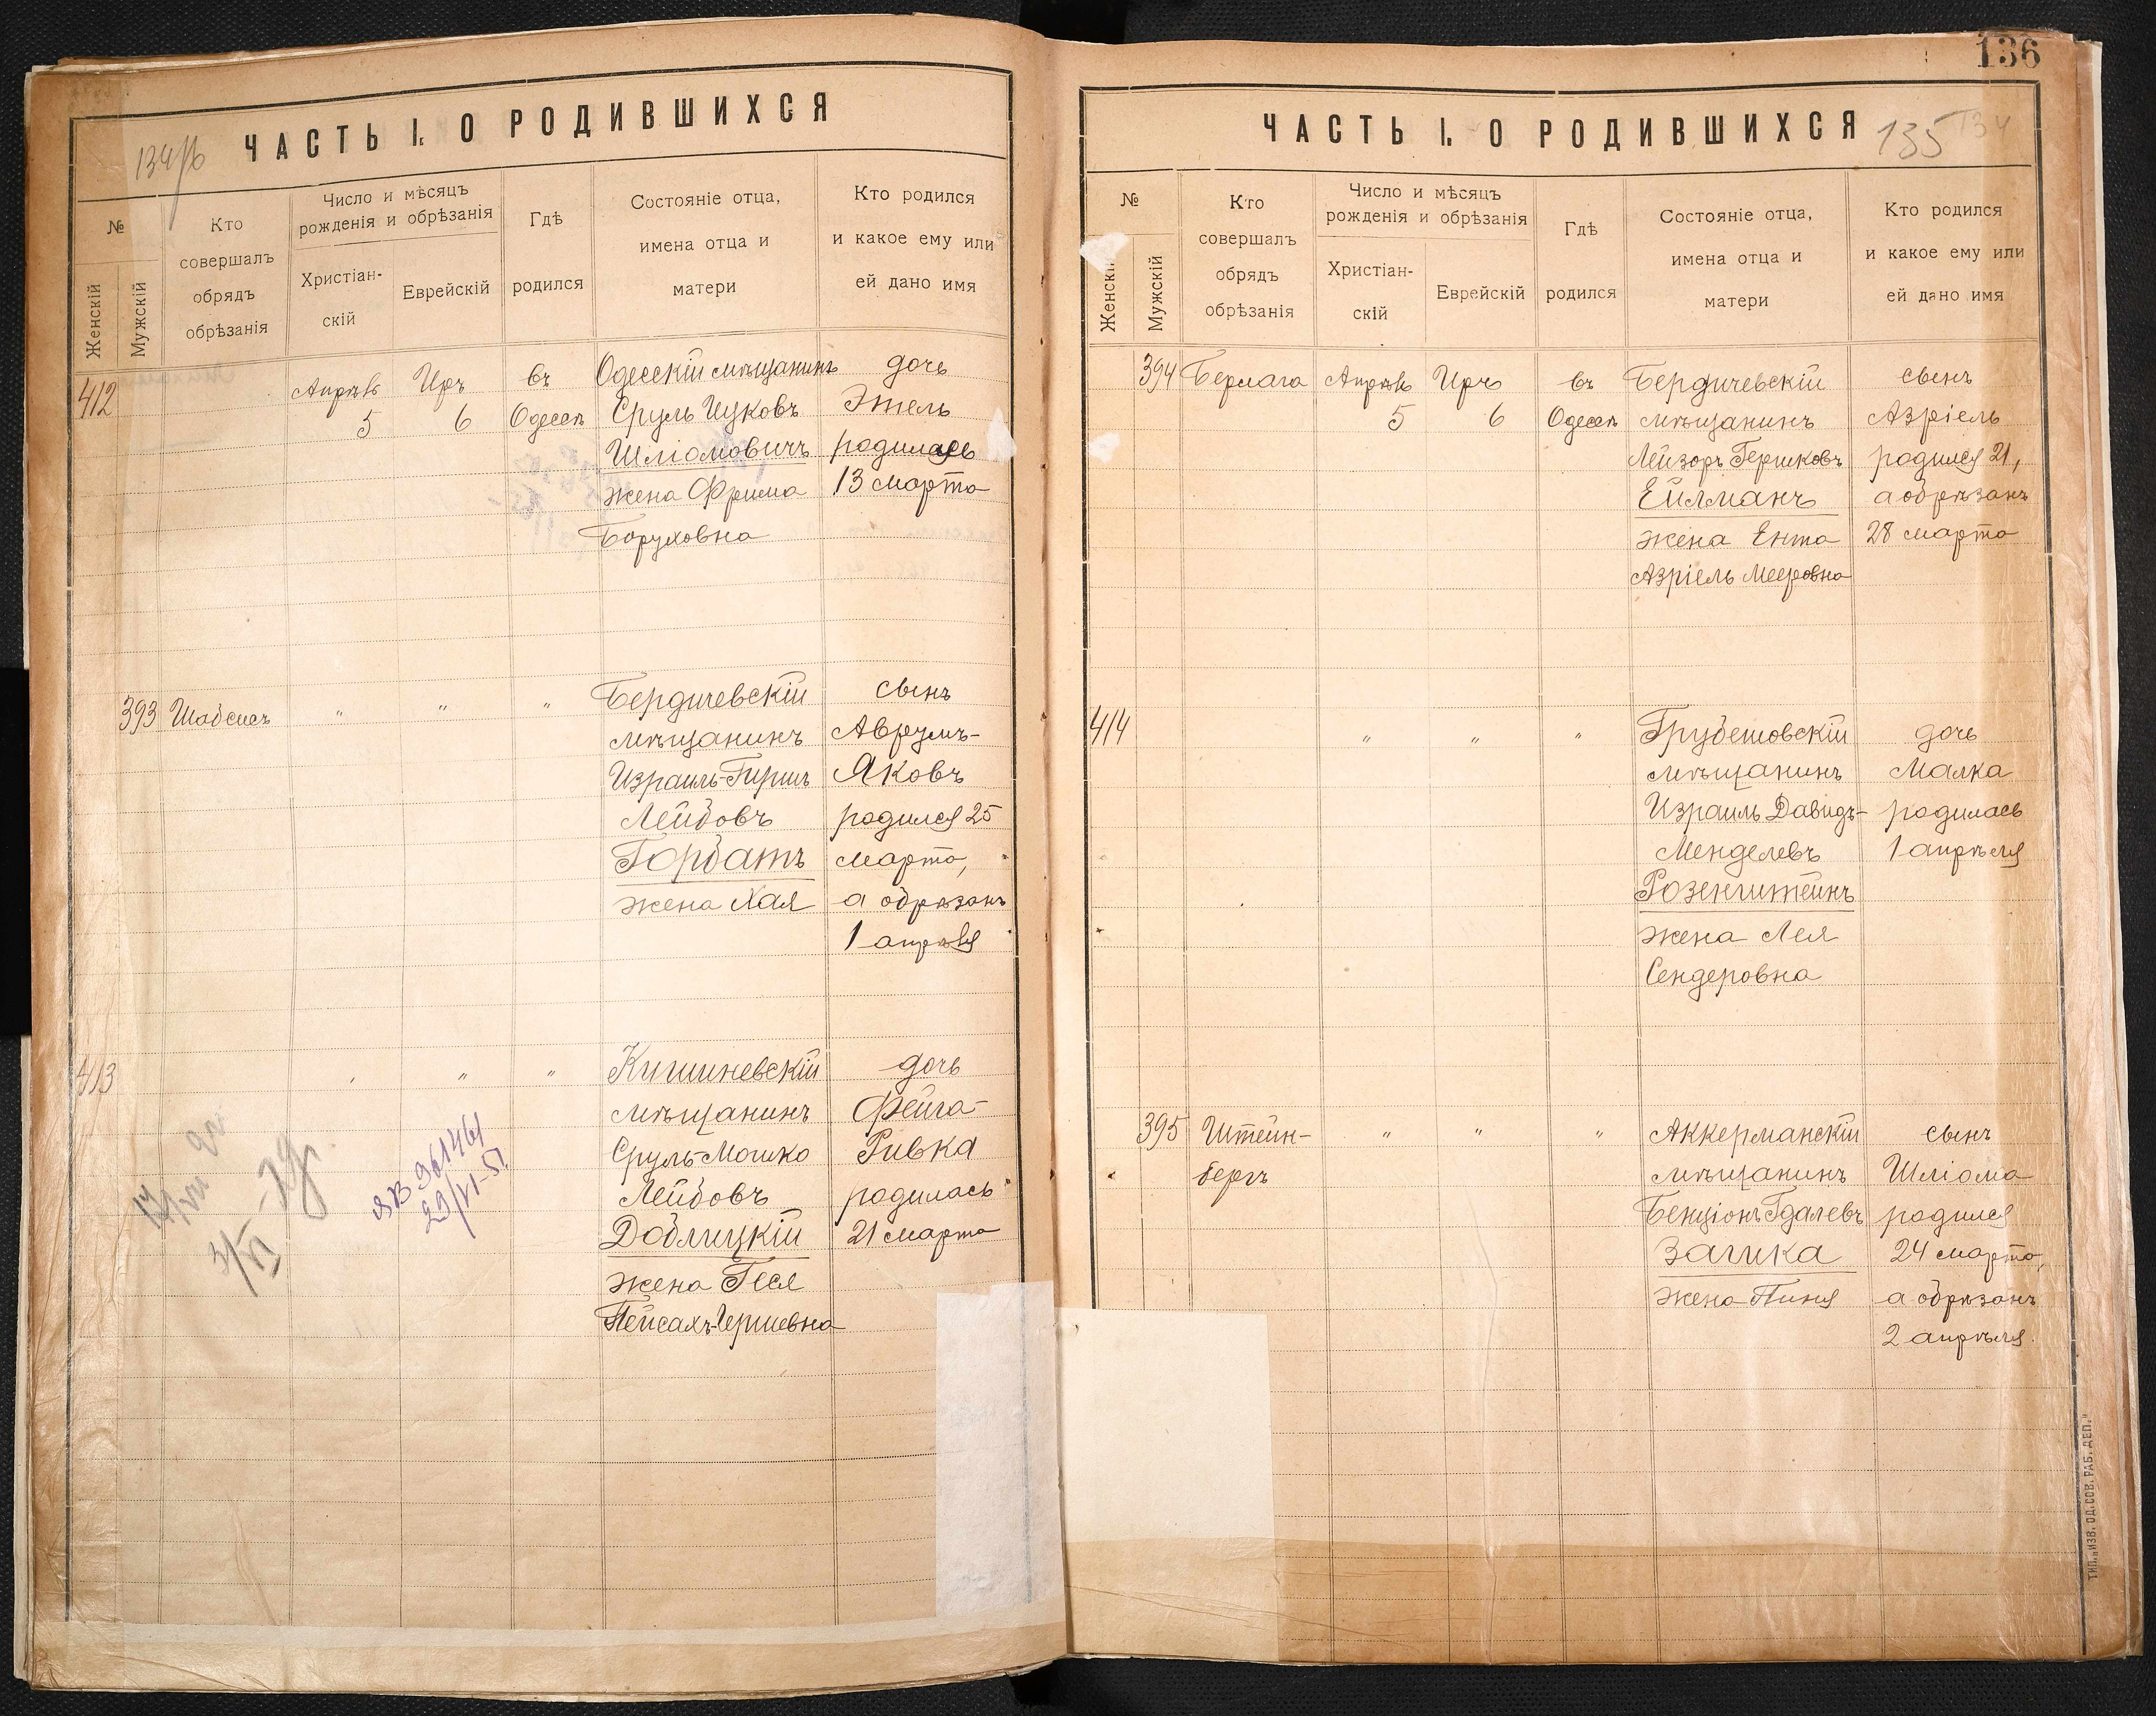 134/б
ЧАСТЬ I. О РОДИВШИХСЯ
№
Женскій
Мужскій
Кто
совершалъ
обрядъ
обрѣзанія
Число и мѣсяцъ
рожденія и обрѣзанія
Христіан-
скій
Еврейскій
Гдѣ
родился
Состояніе отца,
имена отца и
матери
Кто родился
и какое ему или
ей дано имя
412
Апрѣль
5
Иръ
6
въ
Одессѣ
Одесскій мѣщанинъ
Сруль Ицковъ
Шліомовичъ
жена Фрима
Боруховна
дочь
Этель
родилась
13 марта
393 Шабсисъ " " "
Бердичевскій
мѣщанинъ
Израиль-Гершъ
Лейбовъ
Горбатъ
жена Хая
сынъ
Аврумъ-
Яковъ
родился 25
марта,
а обрѣзанъ
1 апрѣля
413 " " "
Кишиневскій
мѣщанинъ
Сруль-Мошко
Лейбовъ
Доблицкій
жена Геся
Пейсахъ-Гершевна
дочь
Фейга-
Ривка
родилась
21 марта
961461
29/VI-51
136
ЧАСТЬ I. О РОДИВШИХСЯ
135
134
№
Женскій
Мужскій
Кто
совершалъ
обрядъ
обрѣзанія
Число и мѣсяцъ
рожденія и обрѣзанія
Христіан-
скій
Еврейскій
Гдѣ
родился
Состояніе отца,
имена отца и
матери
Кто родился
и какое ему или
ей дано имя
394 Бермага
Апрѣль
5
Иръ
6
въ
Одессѣ
Бердичевскій
мѣщанинъ
Лейзоръ Гершковъ
Ейлманъ
жена Ента
Азріель Мееровна
сынъ
Азріель
родился 21,
а обрѣзанъ
28 марта
414 " " "
Грубешовскій
мѣщанинъ
Израиль Давидъ-
Менделевъ
Розенштейнъ
жена Лея
Сендеровна
дочь
Малка
родилась
1 апрѣля
395 Штейн-
бергъ
" " "
Аккерманскій
мѣщанинъ
Бенціонъ Гдалевъ
Заика
жена Пиня
сынъ
Шліома
родился
24 марта,
а обрѣзанъ
2 апрѣля.
ТИП. „ИЗВ. ОД. СОВ. РАБ. ДЕП."